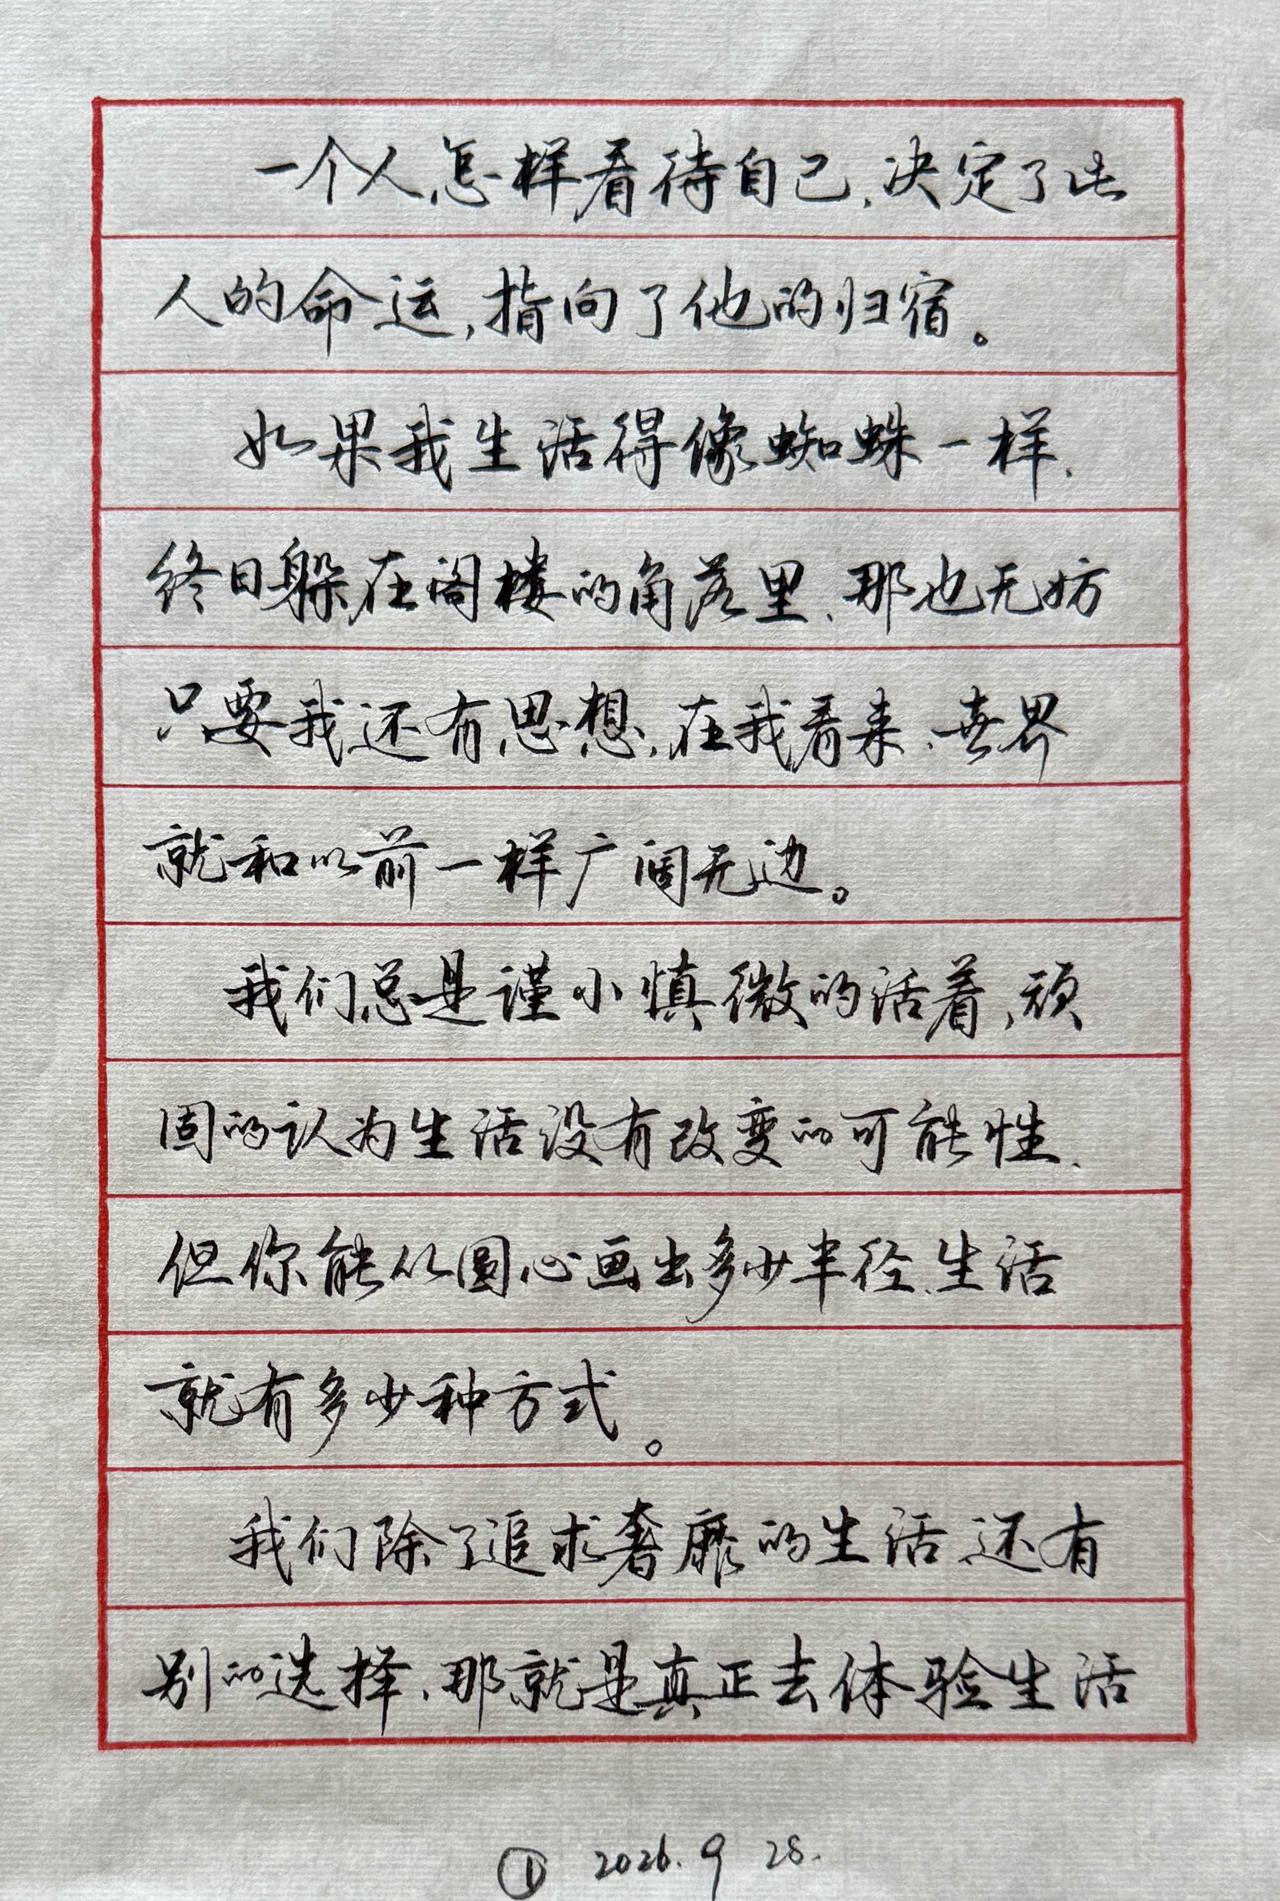 一个人,怎样看待自己,决定了此
人的命运,指向了他的归宿。
如果我生活得像蜘蛛一样,
终日躲在阁楼的角落里,那也无妨
只要我还有思想,在我看来,世界
就和以前一样广阔无边。
我们总是谨小慎微的活着,顽
固的认为生活没有改变的可能性,
但你能从圆心画出多少半径,生活
就有多少种方式。
我们除了追求奢靡的生活,还有
别的选择,那就是真正去体验生活
① 2026.9 28.